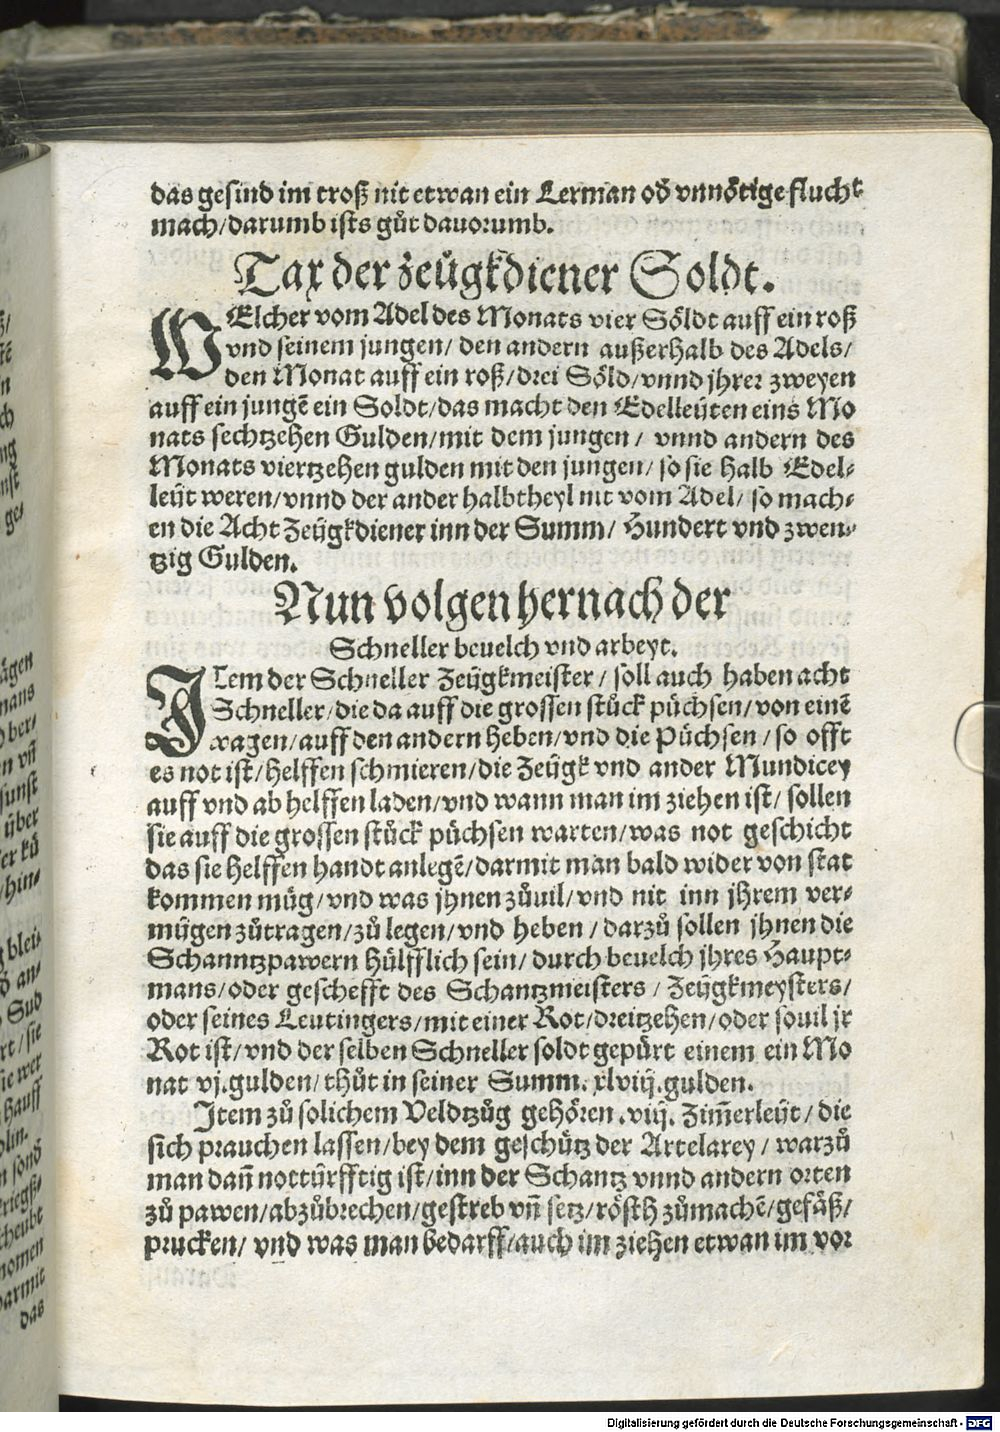 das gesind im troß nit etwan ein Lerman od̛ vnnötige flucht
mach/darumb ists gůt dauorumb.
Tax der zeügkdiener Soldt.
WElcher vom Adel des Monats vier Söldt auff ein roß
vnd seinem jungen/ den andern außerhalb des Adels/
den Monat auff ein roß/drei Söld/vnnd jhrer zweyen
auff ein jungē ein Soldt/das macht den Edelleüten eins Mo
nats sechtzehen Gulden/mit dem jungen/ vnnd andern des
Monats viertzehen gulden mit den jungen/ so sie halb Edel-
leüt weren/vnnd der ander halbtheyl nit vom Adel/ so mach-
en die Acht Zeügkdiener inn der Summ/ Hundert vnd zwen-
tzig Gulden.
Nun volgen hernach der
Schneller beuelch vnd arbeyt.
ITem der Schneller Zeügkmeister/ soll auch haben acht
Schneller/die da auff die grossen stück püchsen/von einē
wagen/auff den andern heben/vnd die Püchsen/so offt
es not ist/helffen schmieren/die Zeügk vnd ander Mundicey
auff vnd ab helffen laden/vnd wann man im ziehen ist/ sollen
sie auff die grossen stück püchsen warten/was not geschicht
das sie helffen handt anlegē/darmit man bald wider von stat
kommen müg/vnd was jhnen zůuil/vnd nit inn jhrem ver-
mügen zůtragen/zů legen/vnd heben/darzů sollen jhnen die
Schanntzpawern hülfflich sein/durch beuelch jhres Haupt-
mans/oder geschefft des Schantzmeisters/Zeügkmeysters/
oder seines Leutingers/mit einer Rot/dreitzehen/oder souil jr
Rot ist/vnd der selben Schneller soldt gepürt einem ein Mo
nat vj.gulden/thůt in seiner Summ. xlviij.gulden.
Item zů solichem Veldtzůg gehören .viij. Zim̄erleüt/die
sich prauchen lassen/bey dem geschütz der Artelarey/warzů
man dan̄ nottürfftig ist/inn der Schantz vnnd andern orten
zů pawen/abzůbrechen/gestreb vn̄ setz/rösth zůmachē/gefäß/
prucken/ vnd was man bedarff/auch im ziehen etwan im vor
ägen
mans
ber/
n vn̄
sunst
über
er kü
/hin-
blei-
an-
Sud
rt/sie
sie wer
Hauff
sond̛
nomen
darmit
das
Digitalisierung gefördert durch die Deutsche Forschungsgemeinschaft - DFG